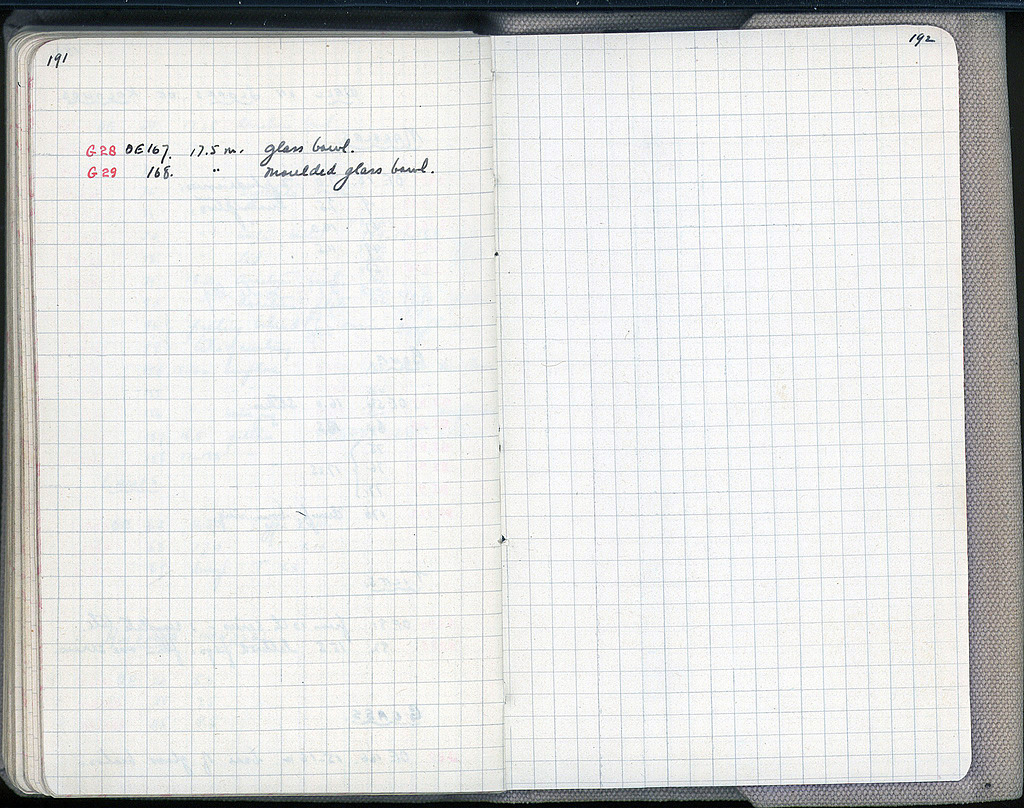 191
G28 DE167. 17.5 m. glass bowl.
G29 168. " moulded glass bowl.
192